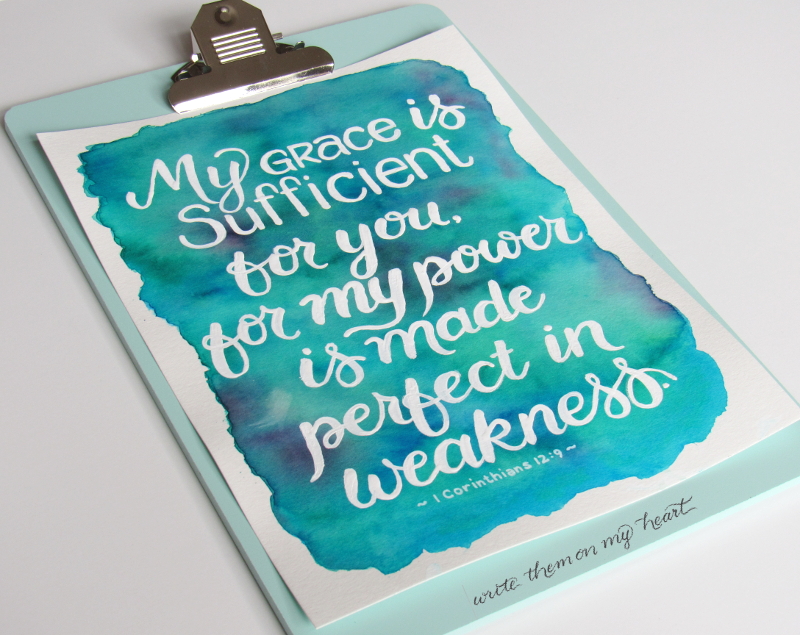 My GRace is
Sufficient
for you,
for my power
is made
perfect in
weakness.
~ 1 Corinthians 12:9 ~
write them on my heart